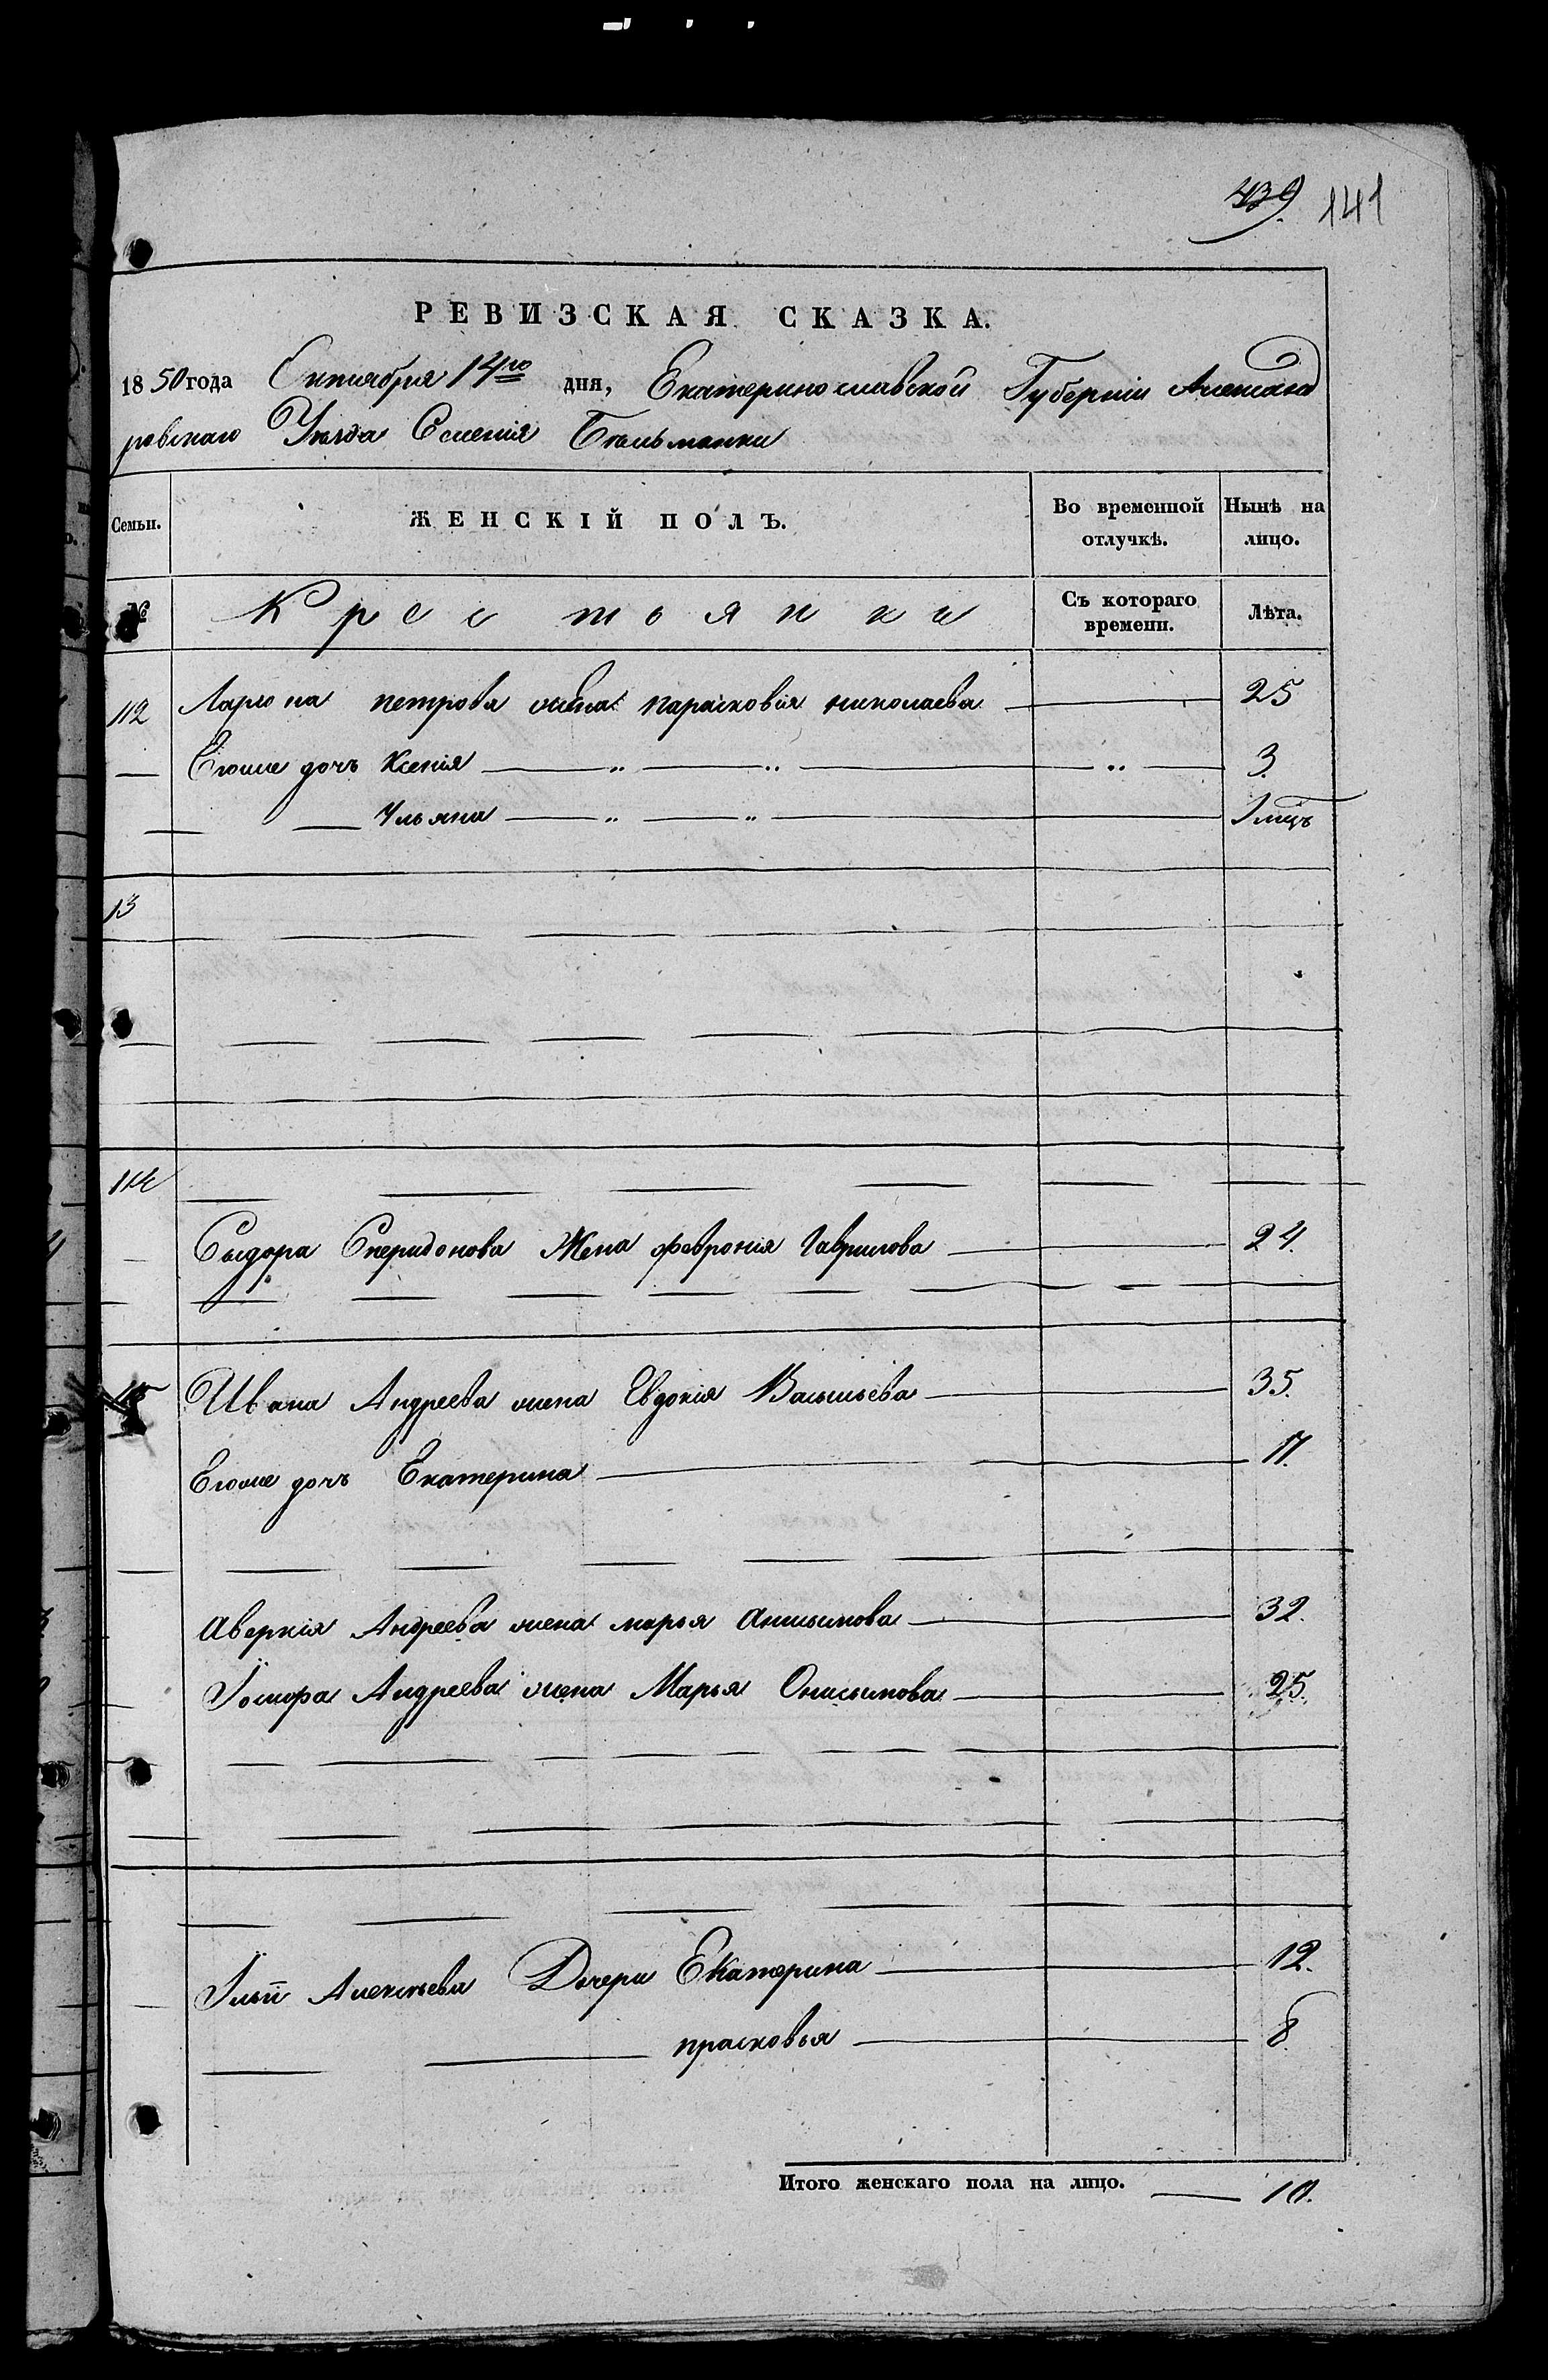 439. 141
РЕВИЗСКАЯ СКАЗКА.
1850 года Октября 14го дня, Екатеринославской Губерніи Александ
ровскаго Уезда Селенія Бельманки
Семьи. ЖЕНСКІЙ ПОЛЪ. Во временной отлучкѣ. Нынѣ на лицо.
№ Крестьянки Съ котораго времени. Лѣта.
112 Лариона петрова жена парасковія николаева 25
Егоже дочь Ксенія 3.
Ульяна 1 мцъ
13
114
Сыдора Спиридонова Жена Февронія Гаврилова 24.
115 Ивана Андреева жена Евдокія Васильева 35.
Егоже дочь Екатерина 17.
аверкія Андреева жена марья анисимова 32.
Іосифа Андреева жена Марья Онисимова 25.
Ільи Алексеева Дочери Екатерина 12.
прасковья 8.
Итого женскаго пола на лицо. 10.